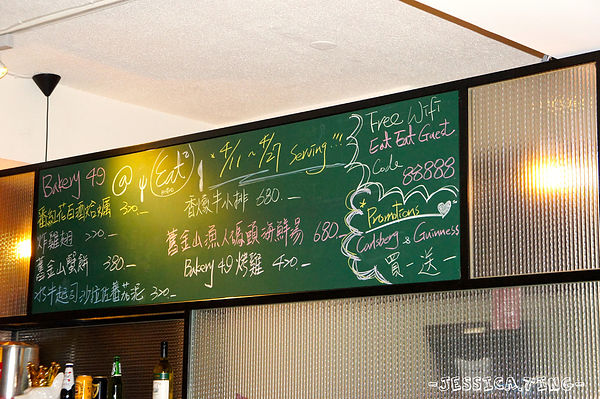 Bakery 49 @ (Eat² * 4/11 ~ 4/27 Serving !!!
番紅花白酒焗蠣 320.-
炸雞翅 220.-
舊金山蟹餅 380.-
水牛起司沙拉佐番茄泥 320.-
香煎牛小排 630.-
舊金山漁人碼頭海鮮湯 680.-
Bakery 49 烤雞 420.-
Free Wifi
Eat Eat Guest
Code
88888
* Promotions
Carlsberg & Guinness
買一送一
-JESSICA.TING-